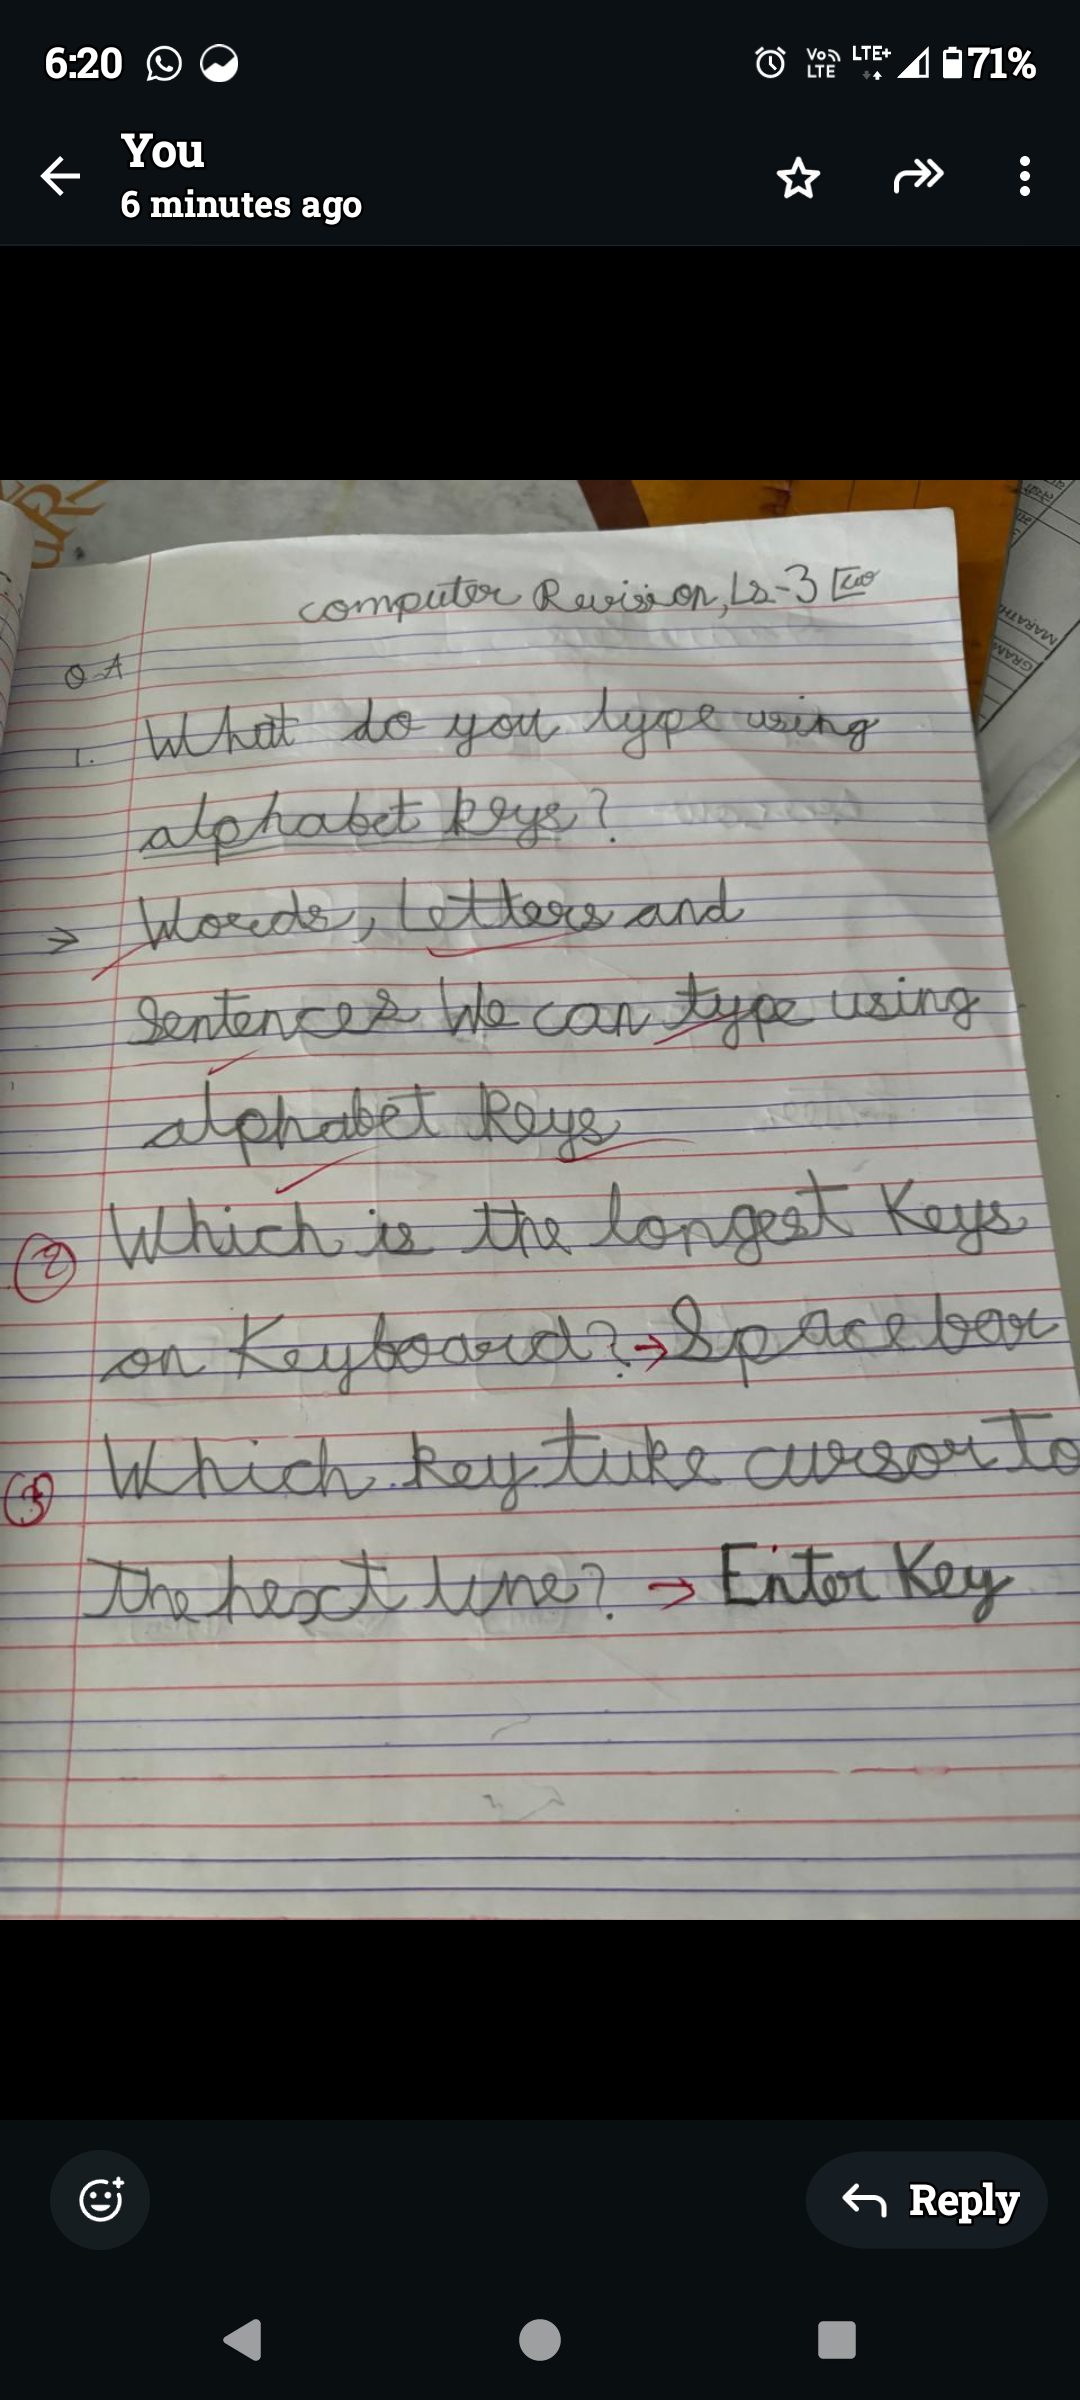 6:20
VoLTE LTE+ 71%
You
6 minutes ago
MARATHI
GRAM
computer Revision, Ls-3
Q-A
1. What do you type using
alphabet keys?
→ Words, Letters and
Sentences We can type using
alphabet keys
2 Which is the longest Keys
on Keyboard? → Spacebar
3 Which key tuke cursor to
the hext line? → Enter Key
Reply